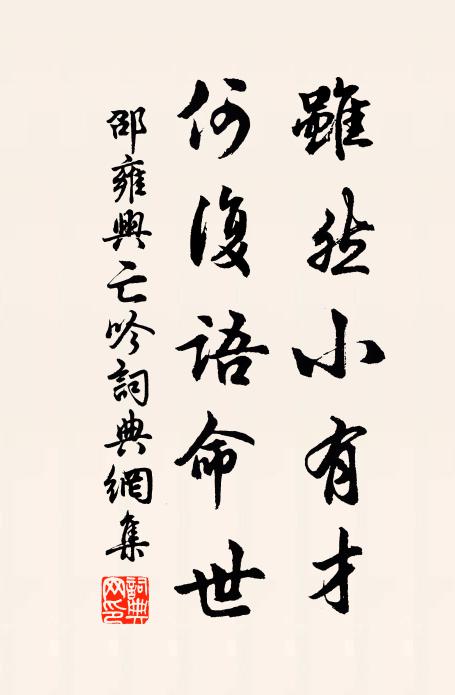 雖然小有才
何復語命世
邵雍興亡吟詞典網集
詞典網印